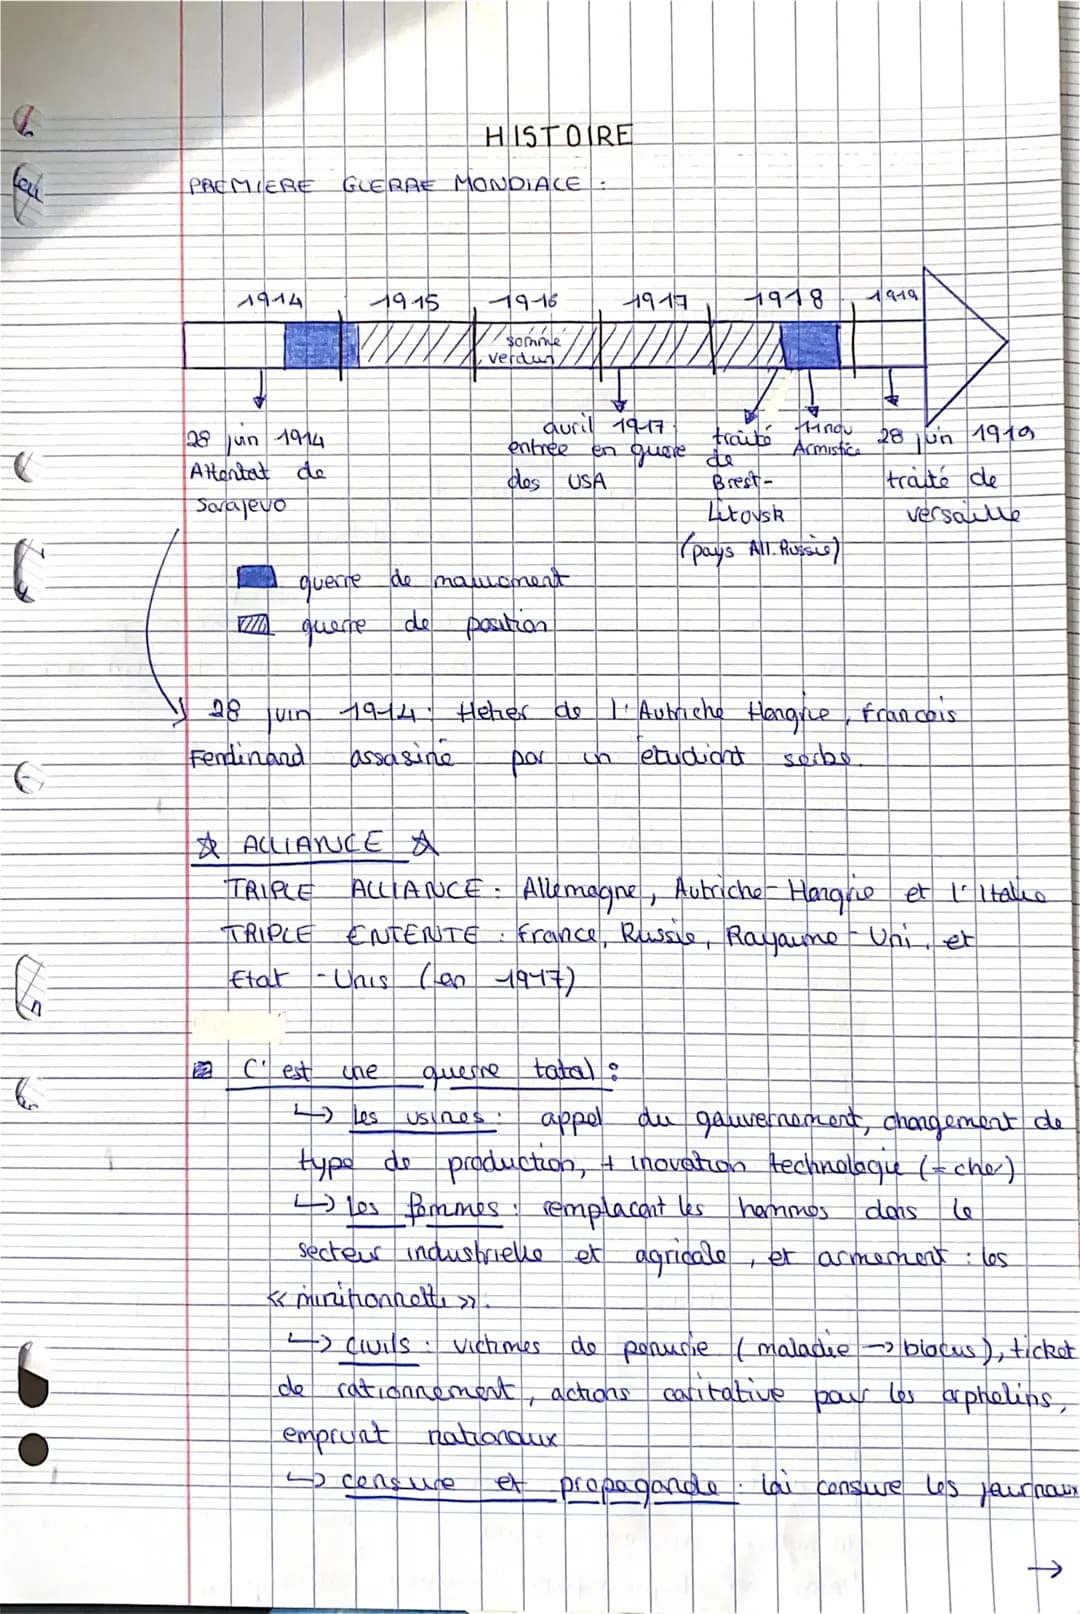 HISTOIRE
PREMIERE GUERRE MONDIALE :
1914 1915 1916 1917 1918 1919
somme
verdun
28 juin 1914
Attentat de
Sarajevo
avril 1917
entrée en guerre
des USA
traité
de
Brest-
Litovsk
(pays All. Russie)
11 nov
Armistice
28 juin 1919
traité de
versaille
guerre de mouvement
guerre de position
28 juin 1914 : Hétier de l'Autriche Hongrie, Francois
Ferdinand assasiné par un étudiant serbe.
☆ ALLIANCE ☆
TRIPLE ALLIANCE : Allemagne, Autriche-Hongrie et l'Italie
TRIPLE ENTENTE : France, Russie, Royaume-Uni, et
Etat-Unis (en 1917)
C'est une guerre total :
↳ les usines : appel du gouvernement, changement de
type de production, + inovation technologie (+ cher)
↳ les femmes : remplacent les hommes dans le
secteur industrielle et agricole, et armement : les
« minitionnette ».
↳ civils : victimes de penurie (maladie → blocus), ticket
de rationnement, actions caritative pour les orphelins,
emprunt nationaux
↳ censure et propagande : loi censure les journaux
→